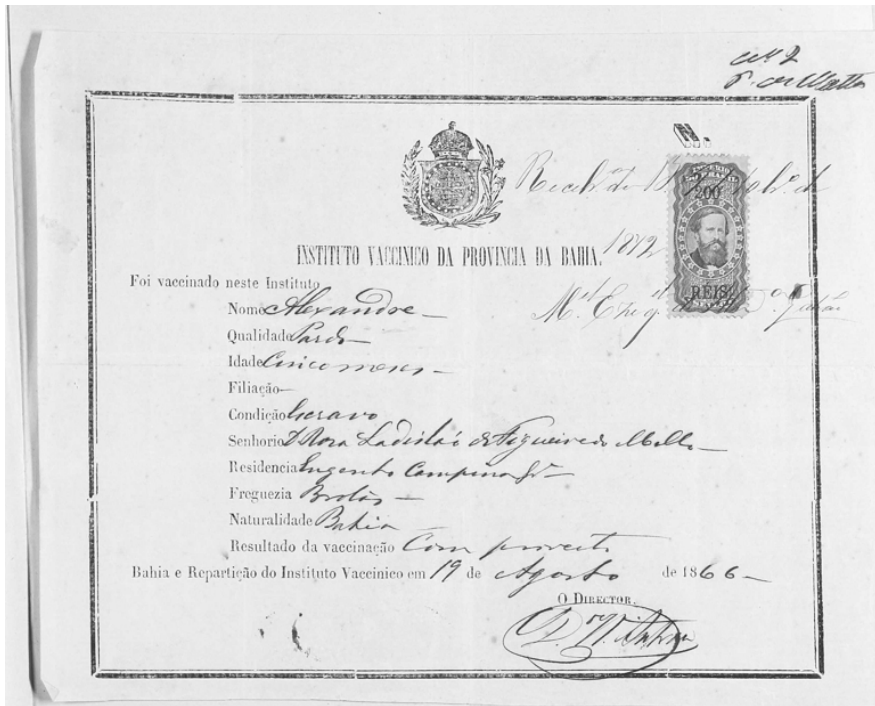 N.
1872
INSTITUTO VACCINICO DA PROVINCIA DA BAHIA.
IMPERIO
200
REIS
Foi vaccinado neste Instituto
Nome Alexandre
Qualidade Pardo
Idade Cinco meses
Filiação
Condição Escravo
Senhorio D. Rosa Ladisláo de Figueiredo Mello
Residencia Engenho Campina
Freguezia Brotas
Naturalidade Bahia
Resultado da vaccinação Com proveito
Bahia e Repartição do Instituto Vaccinico em 19 de Agosto de 1866
O DIRECTOR.